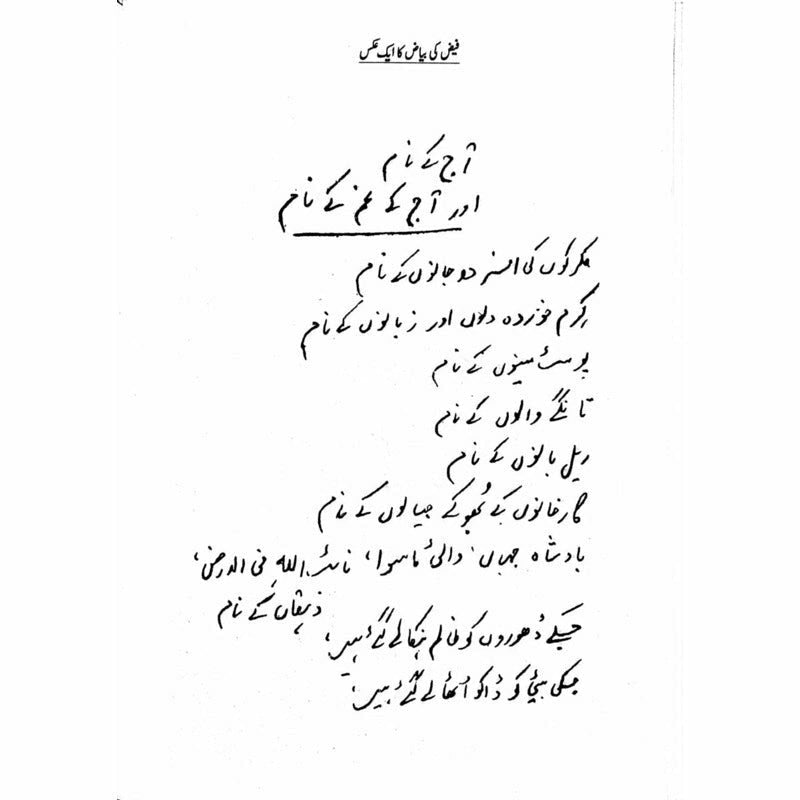 فیض کی بیاض کا ایک عکس
آج کے نام
اور آج کے غم کے نام
کلرکوں کی افسردہ جانوں کے نام
کرم خوردہ دلوں اور زبانوں کے نام
پوسٹ مینوں کے نام
تانگے والوں کے نام
ریل بانوں کے نام
کارخانوں کے بھُوکے جیالوں کے نام
بادشاہ جہاں، والیٔ ماسوا، نائب اللہ فی الارض،
دہقاں کے نام
جسکے ڈھوروں کو ظالم ہنکا لے گئے ہیں،
جسکی بیٹی کو ڈاکو اُٹھا لے گئے ہیں،